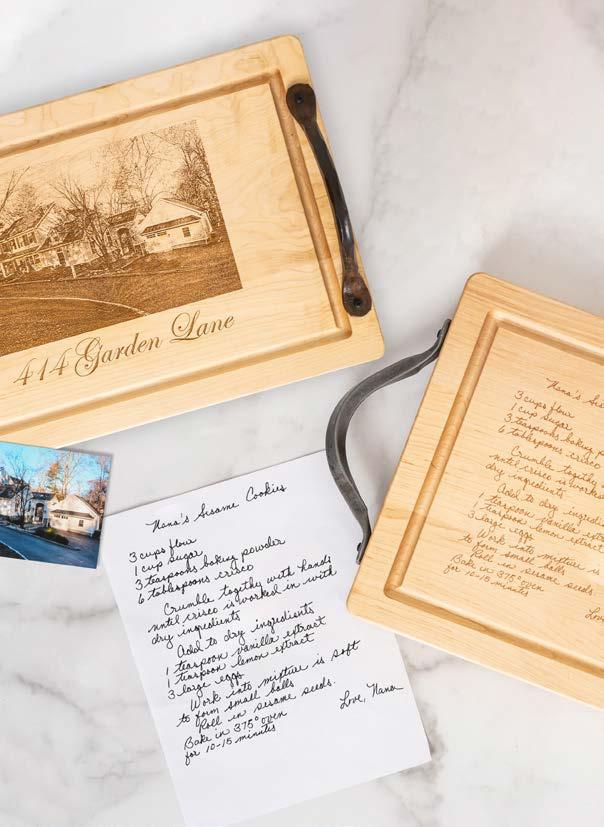 414 Garden Lane
Nana's Sesame Cookies
3 cups flour
1 cup sugar
3 teaspoons baking powder
6 tablespoons crisco
Crumble togethy with hands
until crisco is worked in with
dry ingredients
Add to dry ingredients
1 teaspoon vanilla extract
1 teaspoon lemon extract
3 large eggs
Work into mixture is soft
to form small balls
Roll in sesame seeds.
Bake in 375° oven
for 10-15 minutes
Love, Nana
Nana's Ses
3 cups flour
1 cup sugar
3 teaspoons baking po
6 tablespoons crisco
Crumble togethy
until crisco is worked
dry ingredients
Add to dry ingredi
1 teaspoon vanilla extra
1 teaspoon lemon extract
3 large eggs
Work into mixture is
to form small balls
Roll in sesame seeds.
Bake in 375° oven
for 10-15 minutes
Lov